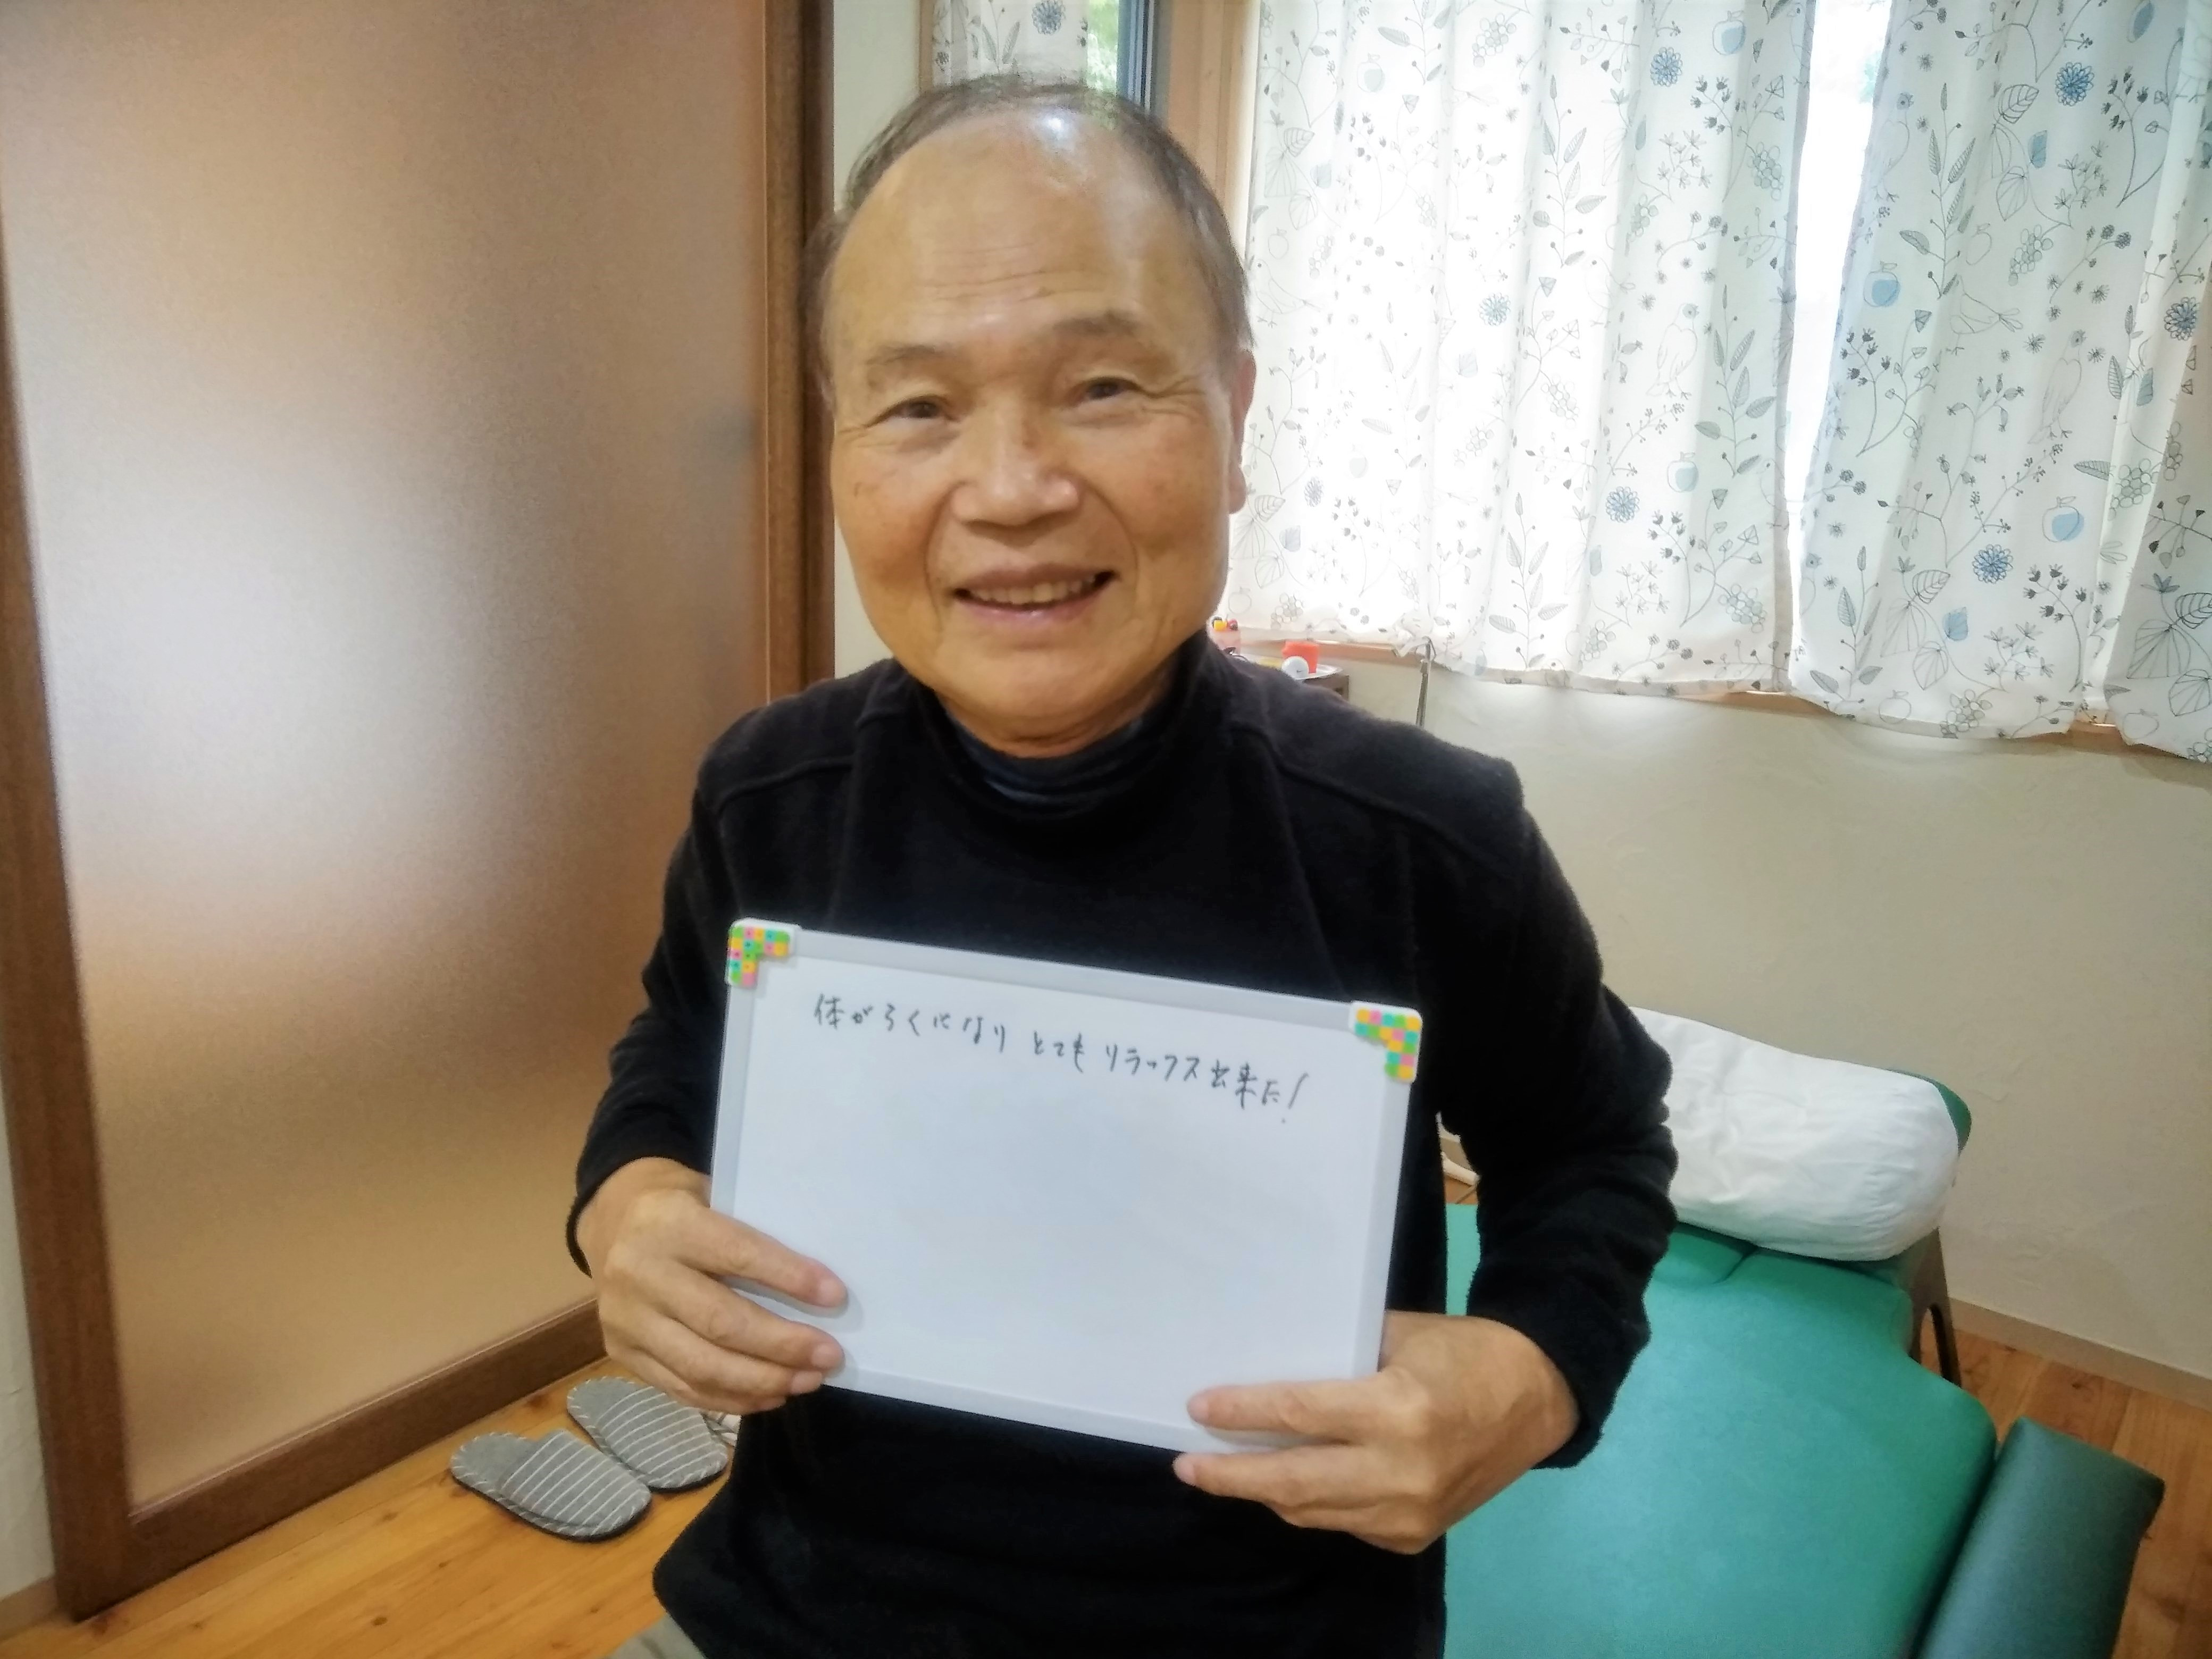 体がらくになり とても リラックス出来た!